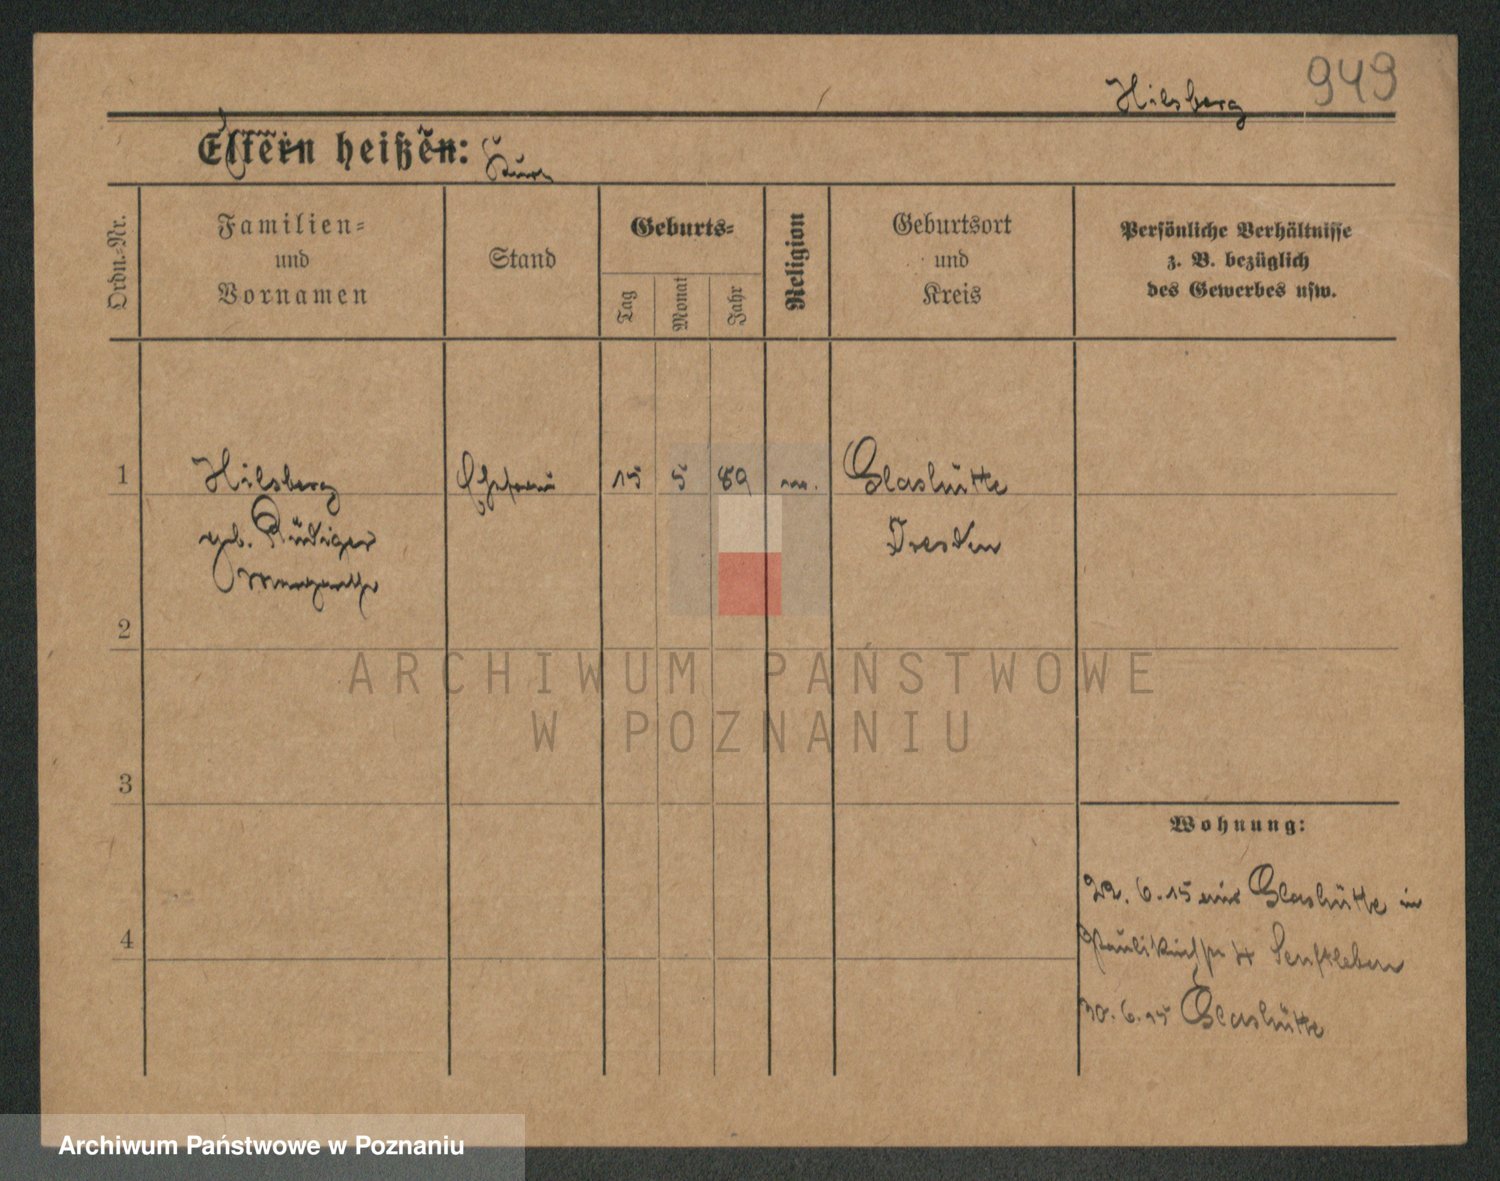 Hilsberg 949
Eltern heißen:
Ordn.-Nr.
Familien-
und
Vornamen
Stand
Geburts-
Tag
Monat
Jahr
Religion
Geburtsort
und
Kreis
Persönliche Verhältnisse
z. B. bezüglich
des Gewerbes usw.
1 Hilsberg Ehefrau 15 5 89 Glashütte
geb. Rüdiger Dresden
Margarethe
2
ARCHIWUM PAŃSTWOWE
W POZNANIU
3
Wohnung:
22. 6. 15 aus Glashütte in
4
Paulikirchstr 4 Senftleben
30. 6. 15 Glashütte
Archiwum Państwowe w Poznaniu